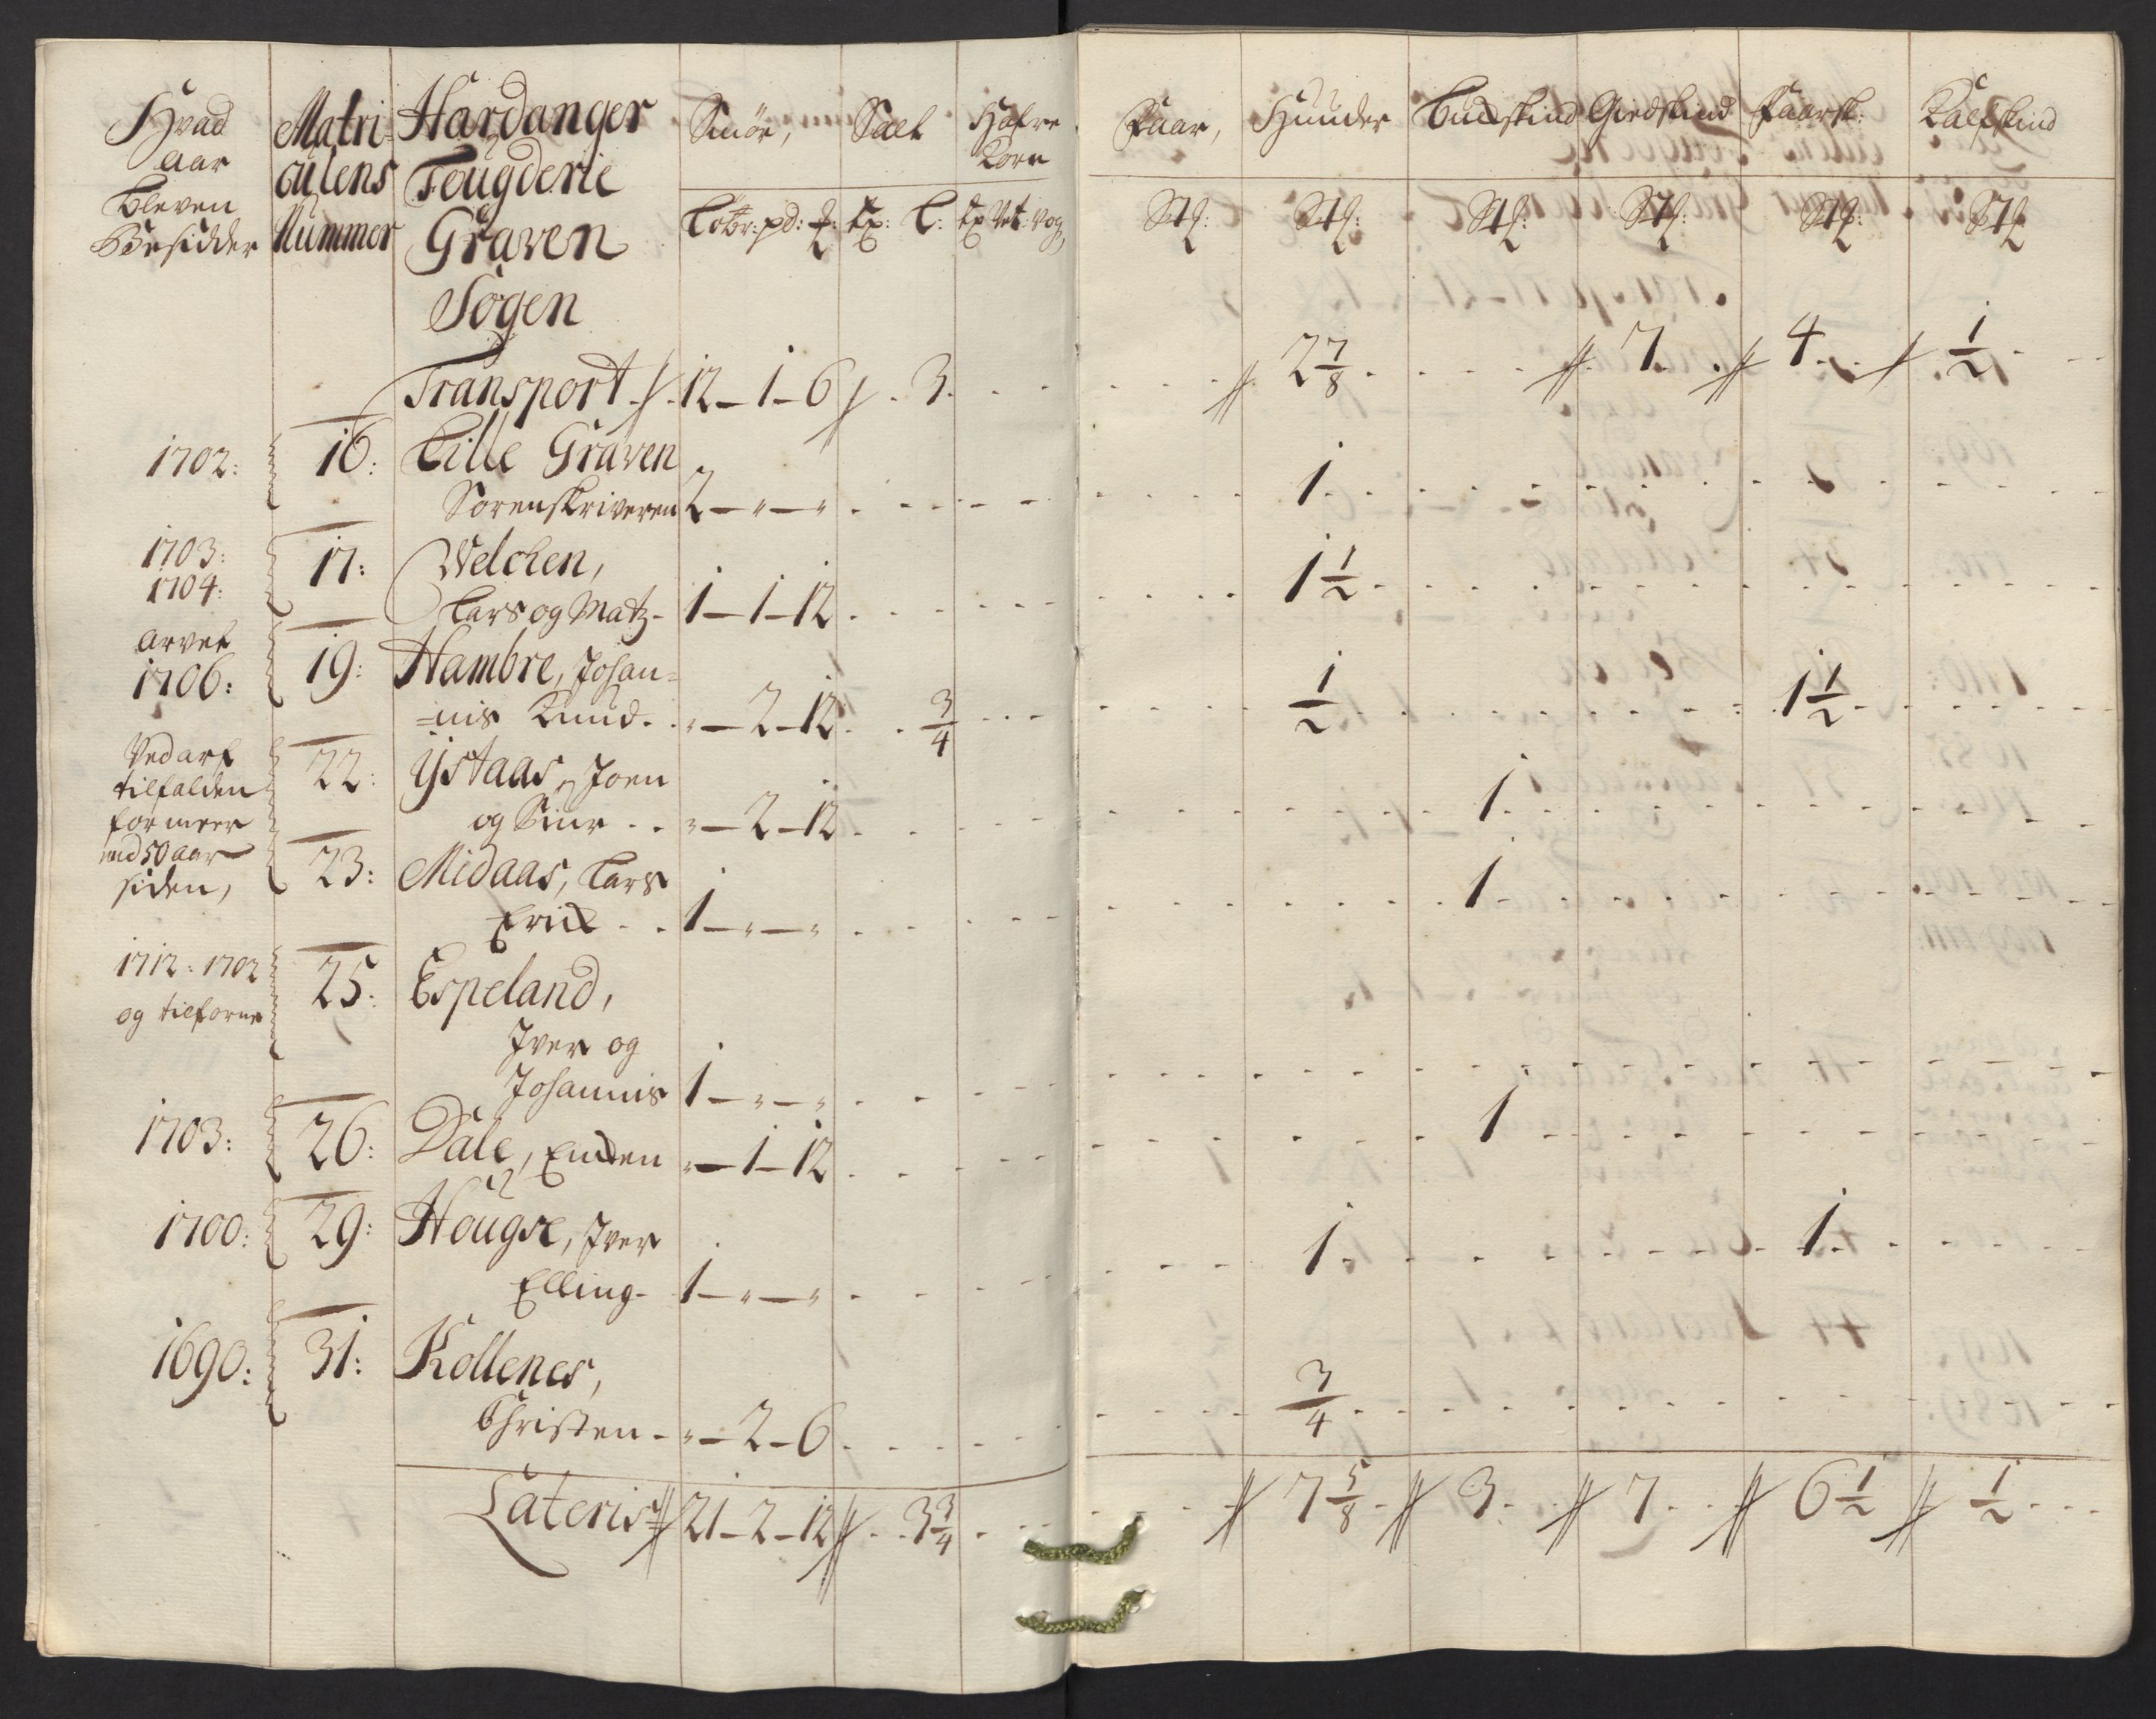 Hvad
aar
bleven
Besidder
Matri
culens
Nummer
Hardanger
Fougderie
Graven
Sogen
Smör, Salt Hafre
Korn
Faar, Huuder Buckskind Giedskind Faarsk: Kalfskind
Transport . 12 – 1 – 6 . 3 . . . 2 7/8 . . 7 . . 4 . . 1/2
1702: 16: Lille Graven
Sorenskriveren 2 – " – " . . . 1 . . .
1703: 17: Velchen,
1704:
Lars og Matz – 1 – 1 – 12 . . . 1 1/2 . . .
Arvet
1706: 19: Hambre, Johan=
=nis Knud . . " – 2 – 12 . . 3/4 . . . 1/2 . . . 1 1/2 . . .
Ved arf
tilfalden
for meer
end 50 aar
siden,
22: Ystaas, Joen
og Siur . . " – 2 – 12 . . . 1 . . .
23: Midaas, Lars
Erick . . 1 – " – " . . . 1 . . .
1712: 1702
og tilforne
25: Espeland,
Iver og
Johannis 1 – " – " . . .
1703: 26: Dale, Encken " – 1 – 12 . . . 1 . . .
1700: 29: Hougse, Iver
Elling – 1 – " – " . . . 1 . . . 1 . . .
1690: 31: Kollenes,
Christen – " – 2 – 6 . . . 3/4 . . .
Lateris 21 – 2 – 12 . . 3 3/4 . . . 7 5/8 . 3 . . 7 . . 6 1/2 1/2 . . .